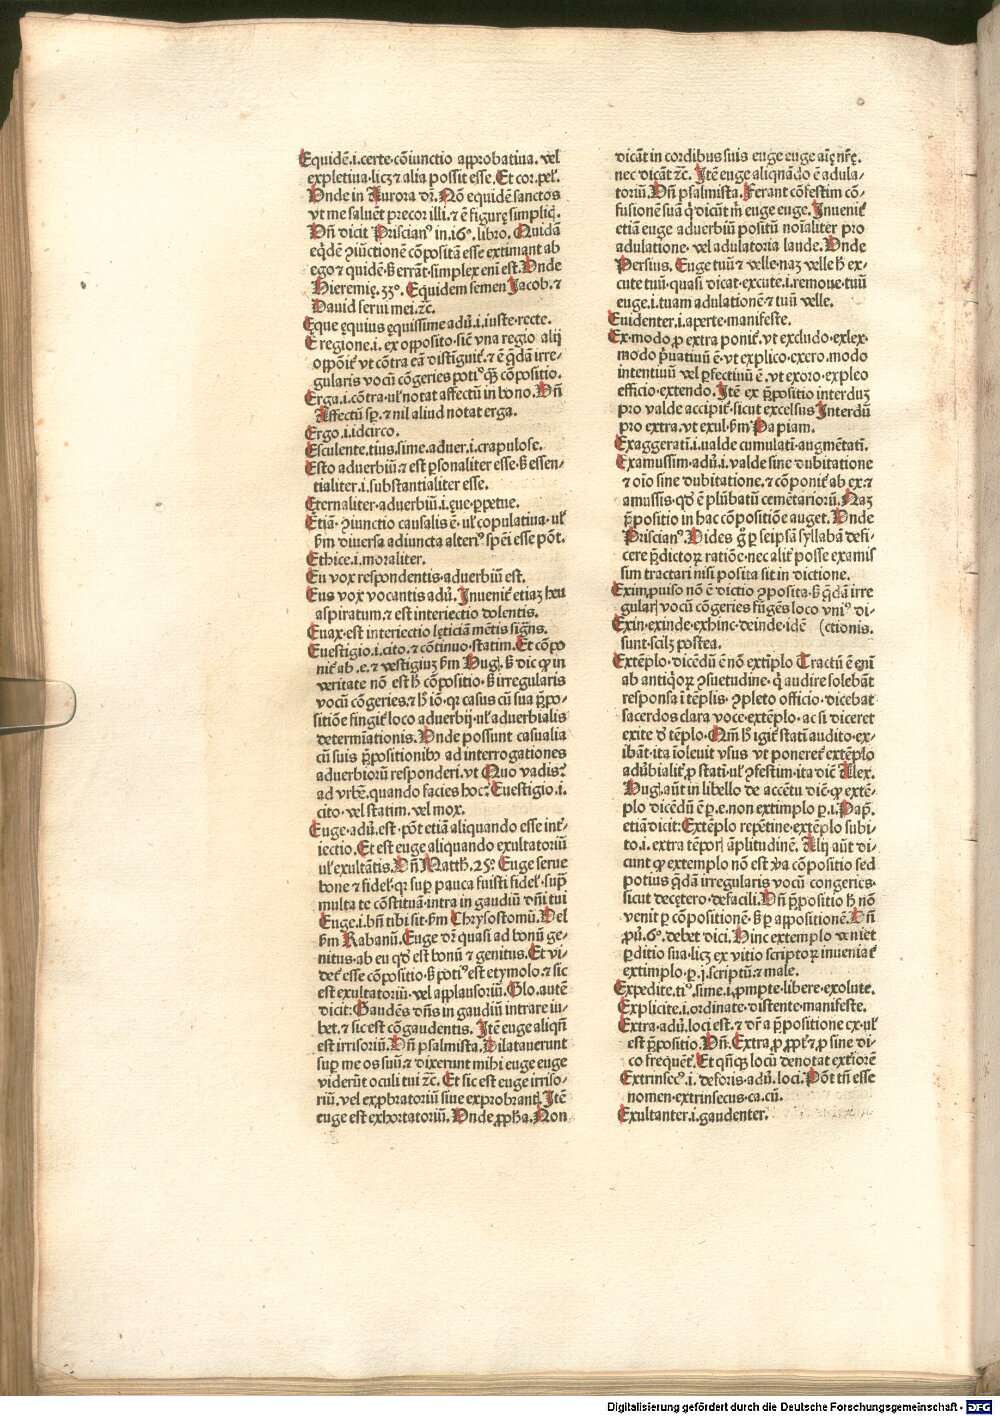 Equidē.i.certe.cōiunctio approbatiua. vel
expletiua.licꝫ ⁊ alia possit esse. Et cor.pēl.
Vnde in Aurora dr̄. Nō equidē sanctos
vt me saluēt precor illi.⁊ ē figurę simplicꝭ.
Vn̄ dicit Priscianꝰ in.16º. libro. Quidā
eq̄dē ꝯiūctionē cōpositā esse extimant ab
ego ⁊ quidē.ß errāt.simplex eni est. Vnde
Hieremię.33º. Equidem semen Jacob.⁊
Dauid serui mei.⁊c̄.
Ęque ęquius ęquissime adū.i.iuste.recte.
E regione.i.ex opposito.sic̄ vna regio alij
oppōit᷑ vt cōtra eā distiguit᷑.⁊ ē q̄dā irre-
gularis vocū cōgeries potiꝰ q̄ꝫ cōpositio.
Erga.i.cōtra.ul̓ notat affectū in bono. Vn̄
Affectū sꝑ.⁊ nil aliud notat erga.
Ergo.i.idcirco.
Esculente.tius.sime.aduer.i.crapulose.
Esto aduerbiū.⁊ est ꝑsonaliter esse.ß essen-
tialiter.i.substantialiter esse.
Eternaliter.aduerbiū.i.ęue.ꝑpetue.
Etiā.ꝯiunctio causalis ē.ul̓ copulatiua.ul̓
ẜm diuersa adiuncta alteriꝰ spēi esse pōt.
Ethice.i.moraliter.
Eu vox respondentis.aduerbiū est.
Eus vox vocantis adū. Jnuenit᷑ etiaꝫ heu
aspiratum.⁊ est interiectio dolentis.
Euax.est interiectio lęticiā mētis sign̄s.
Euestigio.i.cito.⁊ cōtinuo.statim. Et cōpo
nit᷑ ab .e.⁊ vestigiuꝫ ẜm Hug. ß dic ꝙ in
veritate nō est h̄ cōpositio.ß irregularis
vocū cōgeries.⁊ h̄ iō.qꝛ casus cū sua p̄po-
sitiōe fingit᷑ loco aduerbij.ul̓ aduerbialis
determiationis. Vnde possunt casualia
cū suis p̄positionibꝰ ad interrogationes
aduerbiorū responderi.vt Quo vadis?
ad vrbē.quando facies hoc? Euestigio.i.
cito.vel statim.vel mox.
Euge.adū.est.pōt etiā aliquando esse int᷑-
iectio. Et est euge aliquando exultatoriū
ul̓ exultātis. Vn̄ Matth.25º Euge serue
bone ⁊ fidel̓.qꝛ suꝑ pauca fuisti fidel̓.sup̄
multa te cōstituā.intra in gaudiū dn̄i tui
Euge.i.bn̄ tibi sit.ẜm Chrysostomū. Vel
ẜm Rabanū. Euge dr̄ quasi ad bonū ge-
nitus.ab eu qd̓ est bonū ⁊ genitus. Et vi-
det᷑ esse cōpositio.ß potiꝰ est etymolo.⁊ sic
est exultatoriū.vel applausoriū. Glo.autē
dicit: Gaudēs dn̄s in gaudiū intrare iu-
bet.⁊ sic est cōgaudentis. Jtē euge aliqn̄
est irrisoriū. Vn̄ psalmista. Dilatauerunt
suꝑ me os suū.⁊ dixerunt mihi euge euge
viderūt oculi tui ⁊c̄. Et sic est euge irriso-
riū.vel exprobratoriū siue exprobrantꝭ. Jtē
euge est exhortatoriū. Vnde ꝓpha. Non
dicāt in cordibus suis euge euge aīę nr̄ę.
nec dicāt ⁊c̄. Jtē euge aliqnādo ē adula-
toriū. Vn̄ psalmista. Ferant cōfestim cō-
fusionē suā q̇ dicūt m̄ euge euge. Jnuenit᷑
etiā euge aduerbiū positū noīaliter pro
adulatione.vel adulatoria laude. Vnde
Persius. Euge tuū ⁊ velle.naꝫ velle h̄ ex-
cute tuū.quasi dicat.excute.i.remoue.tuū
euge.i.tuam adulationē ⁊ tuū velle.
Euidenter.i.aperte.manifeste.
Ex.modo ꝓ extra ponit᷑.vt excludo.exlex.
modo p̄uatiuū ē.vt explico.exero.modo
intentiuū vel ꝑfectiuū ē.vt exoro.expleo
efficio.extendo. Jtē ex p̄positio interduꝫ
pro valde accipit᷑.sicut excelsus Jnterdū
pro extra.vt exul.ẜm Papiam.
Exaggeratī.i.valde cumulatī.augmētatī.
Examussim.adū.i.valde sine dubitatione
⁊ oīo sine dubitatione.⁊ cōponit᷑ ab ex.⁊
amussis.qd̓ ē plūbatū cemētariorū. Naꝫ
p̄positio in hac cōpositiōe auget. Vnde
Priscianꝰ. Vides gͦ ꝑ seipsā syllabā defi-
cere p̄dictoꝝ ratiōe.nec alit᷑ posse examis
sim tractari nisi posita sit in dictione.
Eximꝓuiso nō ē dictio ꝯposita.ß q̄dā irre
gularꝭ vocū cōgeries fūgēs loco vniꝰ di-
Exin.exinde.exhinc.deinde.idē (ctionis.
sunt.scilꝫ postea.
Extēplo.dicēdū ē nō extīplo Tractū ē eni
ab antiqoꝝ ꝯsuetudine.q̇ audire solebāt
responsa ī tēplis.ꝯpleto officio.dicebat
sacerdos clara voce.extēplo.ac si diceret
exite d̓ tēplo. Qm̄ h̄ igit᷑ statī audito.ex-
ibāt.ita īoleuit vsus vt poneret᷑ extēplo
adūbialit᷑ ꝓ statī.ul̓ ꝯfestim.ita dic̄ Alex.
Hug.aūt in libello de accētu dic̄.ꝙ extē-
plo dicēdū ē ꝑ.e.non extimplo ꝑ.i. Pap.
etiā dicit: Extēplo repētine.extēplo subi-
to.i.extra tēporꝭ āplitudinē. Alij aūt di-
cunt ꝙ extemplo nō est ꝟa cōpositio sed
potius q̄dā irregularis vocū congeries.
sicut decętero.defacili. Vn̄ p̄positio h̄ nō
venit ꝑ cōpositionē.ß ꝑ appositionē. Vn̄
ꝓu̓.6º.debet dici. Hinc extemplo veniet
ꝑditio sua.licꝫ ex vitio scriptoꝝ inueniat᷑
extimplo.ꝑ.j.scriptū.⁊ male.
Expedite.tiꝰ.sime.i.ꝓmpte.libere.exolute.
Explicite.i.ordinate.distente.manifeste.
Extra.adū.loci est.⁊ dr̄ a p̄positione ex.ul̓
est p̄positio. Vn̄. Extra ꝓ ꝓpt᷑ ⁊ ꝓ sine di-
co frequēt᷑. Et qn̄qꝫ locū denotat extiorē
Extrinsecꝰ.i.deforis.adū.loci. Pōt tn̄ esse
nomen.extrinsecus.ca.cū.
Exultanter.i.gaudenter.
Digitalisierung gefördert durch die Deutsche Forschungsgemeinschaft - DFG